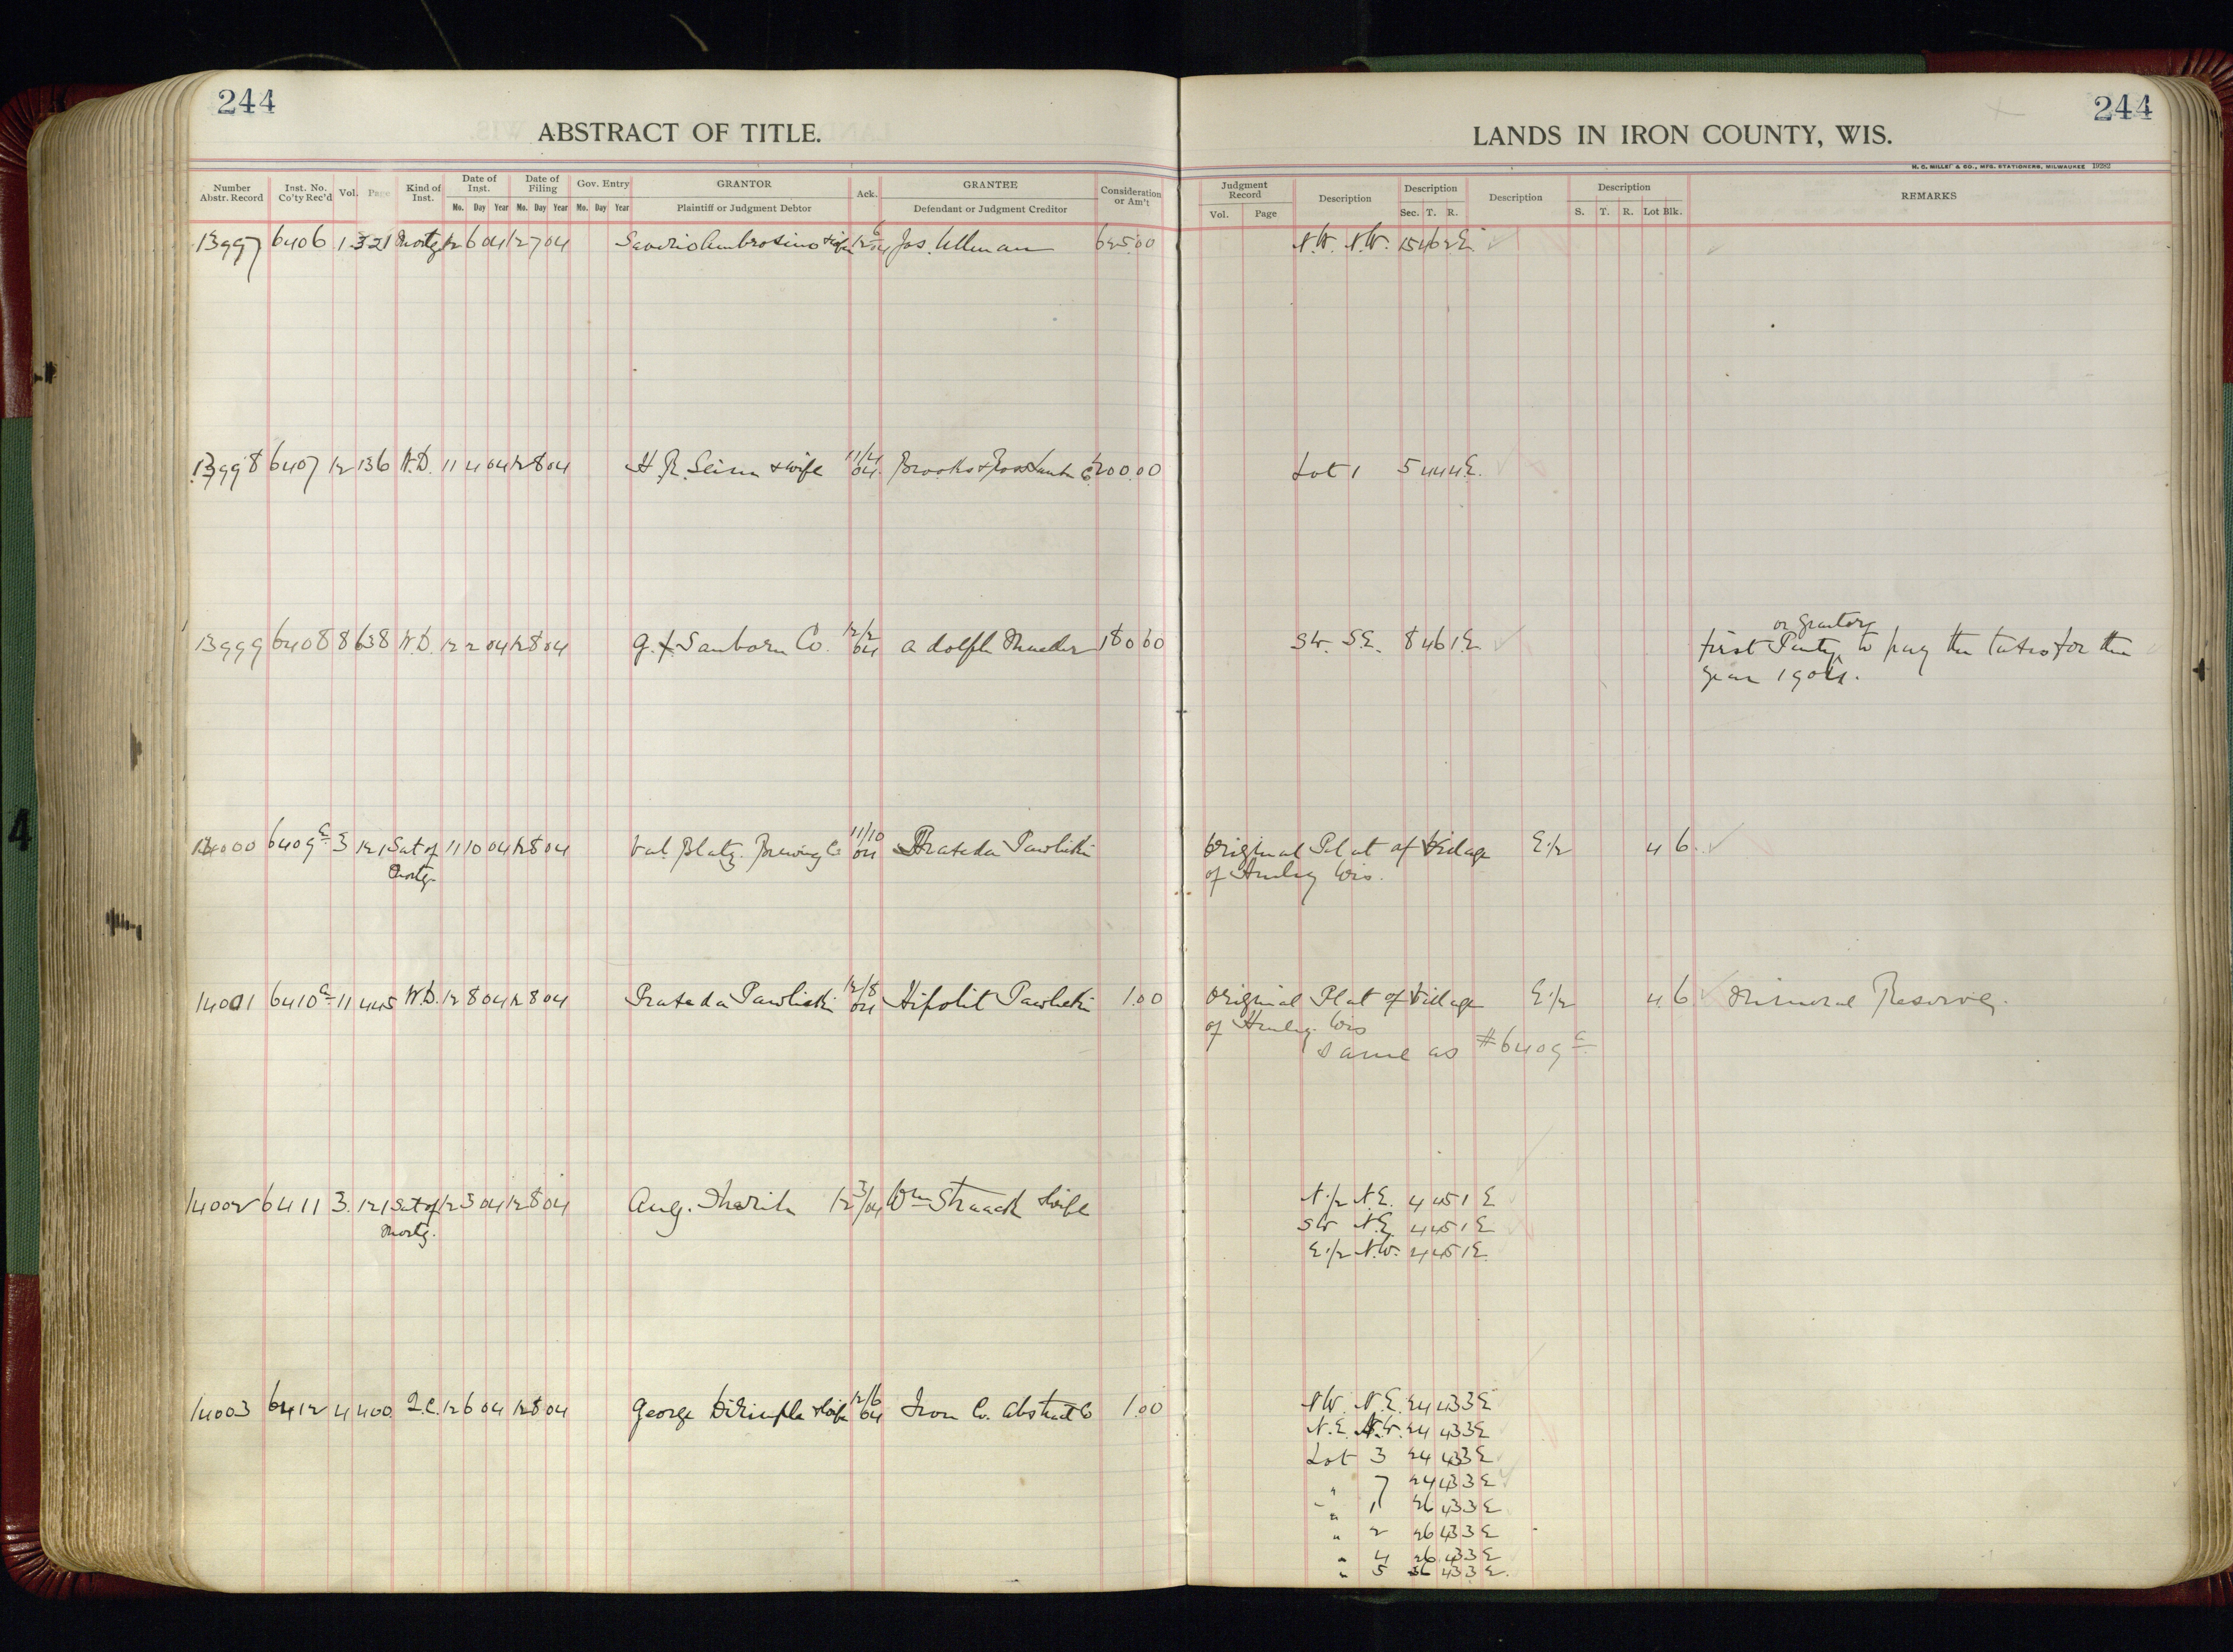 244
ABSTRACT OF TITLE.
Number Abstr. Record Inst. No. Co'ty Rec'd Vol. Page Kind of Inst. Date of Inst. Mo. Day Year Date of Filing Mo. Day Year Gov. Entry Mo. Day Year GRANTOR Plaintiff or Judgment Debtor Ack. GRANTEE Defendant or Judgment Creditor Consideration or Am't
244
LANDS IN IRON COUNTY, WIS.
H. C. MILLER & CO., MFG. STATIONERS, MILWAUKEE 19262
Judgment Record Vol. Page Description Description Sec. T. R. Description Description S. T. R. Lot Blk. REMARKS
13997 6406 1 321 Mortg 12 6 04 12 7 04 Saverio Ambrosino & wife 12/6 04 Jos. Ullman 625.00 N.W. N.W. 15 46 2 E.
13998 6407 12 136 W.D. 11 4 04 12 8 04 H. R. & wife 11/4 04 Brooks & Ross Lumber Co 200.00 Lot 1 5 44 4 E.
or grantors
13999 6408 8 638 W.D. 12 2 04 12 8 04 G. F. Sanborn Co. 12/2 04 Adolph 180 00 S.W. S.E. 8 46 1 E. first Party to pay the taxes for the
year 1904.
14000 6409 a 3 121 Sat of 11 10 04 12 8 04 Val. Blatz Brewing Co 11/10 04 Prakseda Pawlicki Original Plat of Village E.1/2 4 6
Mortg. of Hurley Wis.
14001 6410 a 11 445 W.D. 12 8 04 12 8 04 Prakseda Pawlicki 12/8 04 Hipolit Pawlicki 1.00 Original Plat of Village E.1/2 4 6 Mineral Reserve.
of Hurley Wis
same as #6409 a
14002 6411 3. 121 Sat of 12 3 04 12 8 04 Aug. 12 3/04 Wm Straack & wife N.1/2 N.E. 4 45 1 E
Mortg. SW N.E. 4 45 1 E
E.1/2 N.W. 4 45 1 E.
14003 6412 4 400 Q.C. 12 6 04 12 8 04 George & wife 12/6 04 Iron Co. Abstract Co 1.00 NW. N.E. 24 43 3 E
N.E. N.W. 24 43 3 E
Lot 3 24 43 3 E
" 7 24 43 3 E
" 1 26 43 3 E
" 2 26 43 3 E
" 4 26 43 3 E
" 5 36 43 3 E.
4